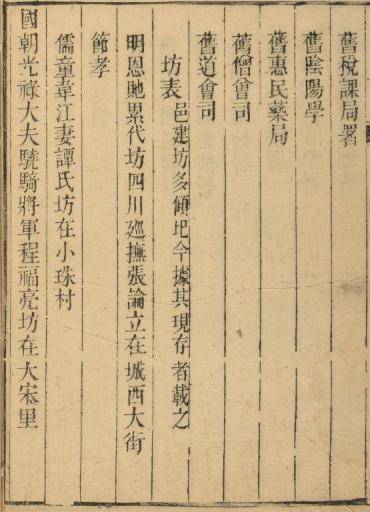 舊稅課局署
舊陰陽學
舊惠民藥局
舊僧會司
舊道會司
坊表 邑建坊多傾圮今據其現存者載之
明恩貤累代坊四川廵撫張論立在城西大街
節孝
儒童韋江妻譚氏坊在小珠村
國朝光祿大夫驍騎將軍程福亮坊在大宋里